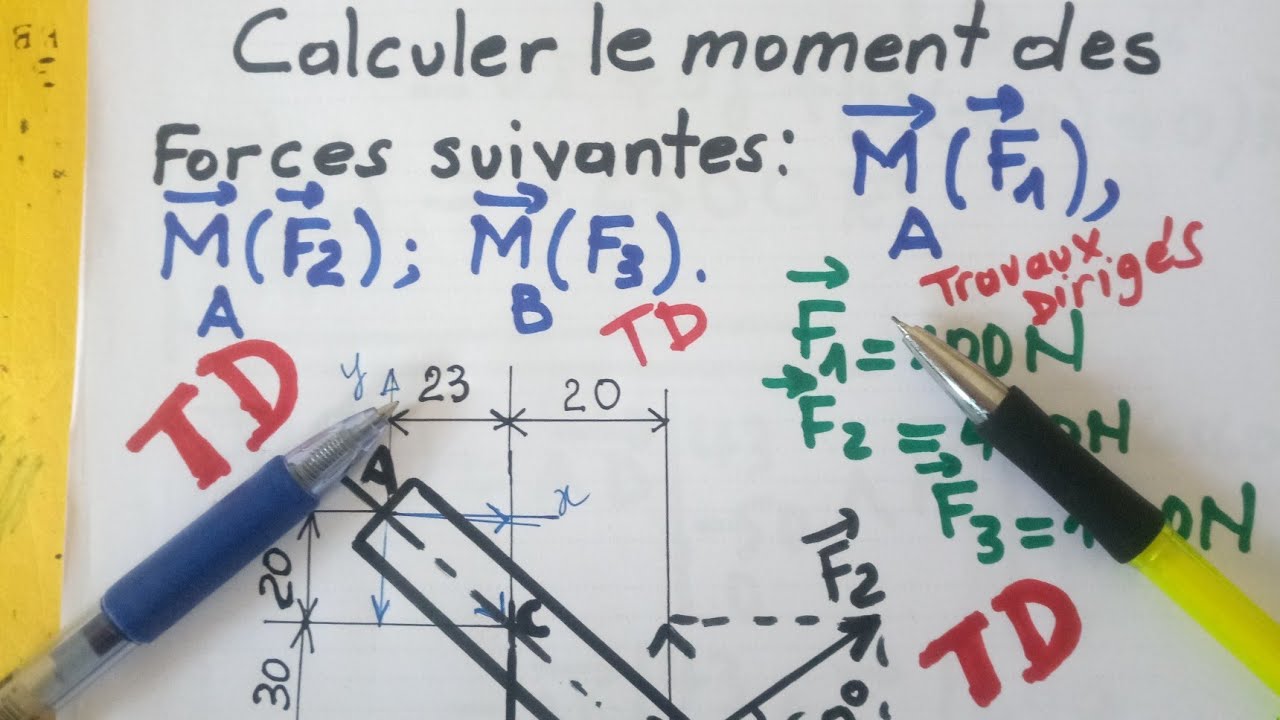 Calculer le moment des
Forces suivantes: M(F1),
A
M(F2); M(F3).
A B
Travaux
Dirigés
TD
TD
F1 = 00N
F2 = 0N
F3 = 0N
y
23
20
A
x
20
C
F2
TD
30